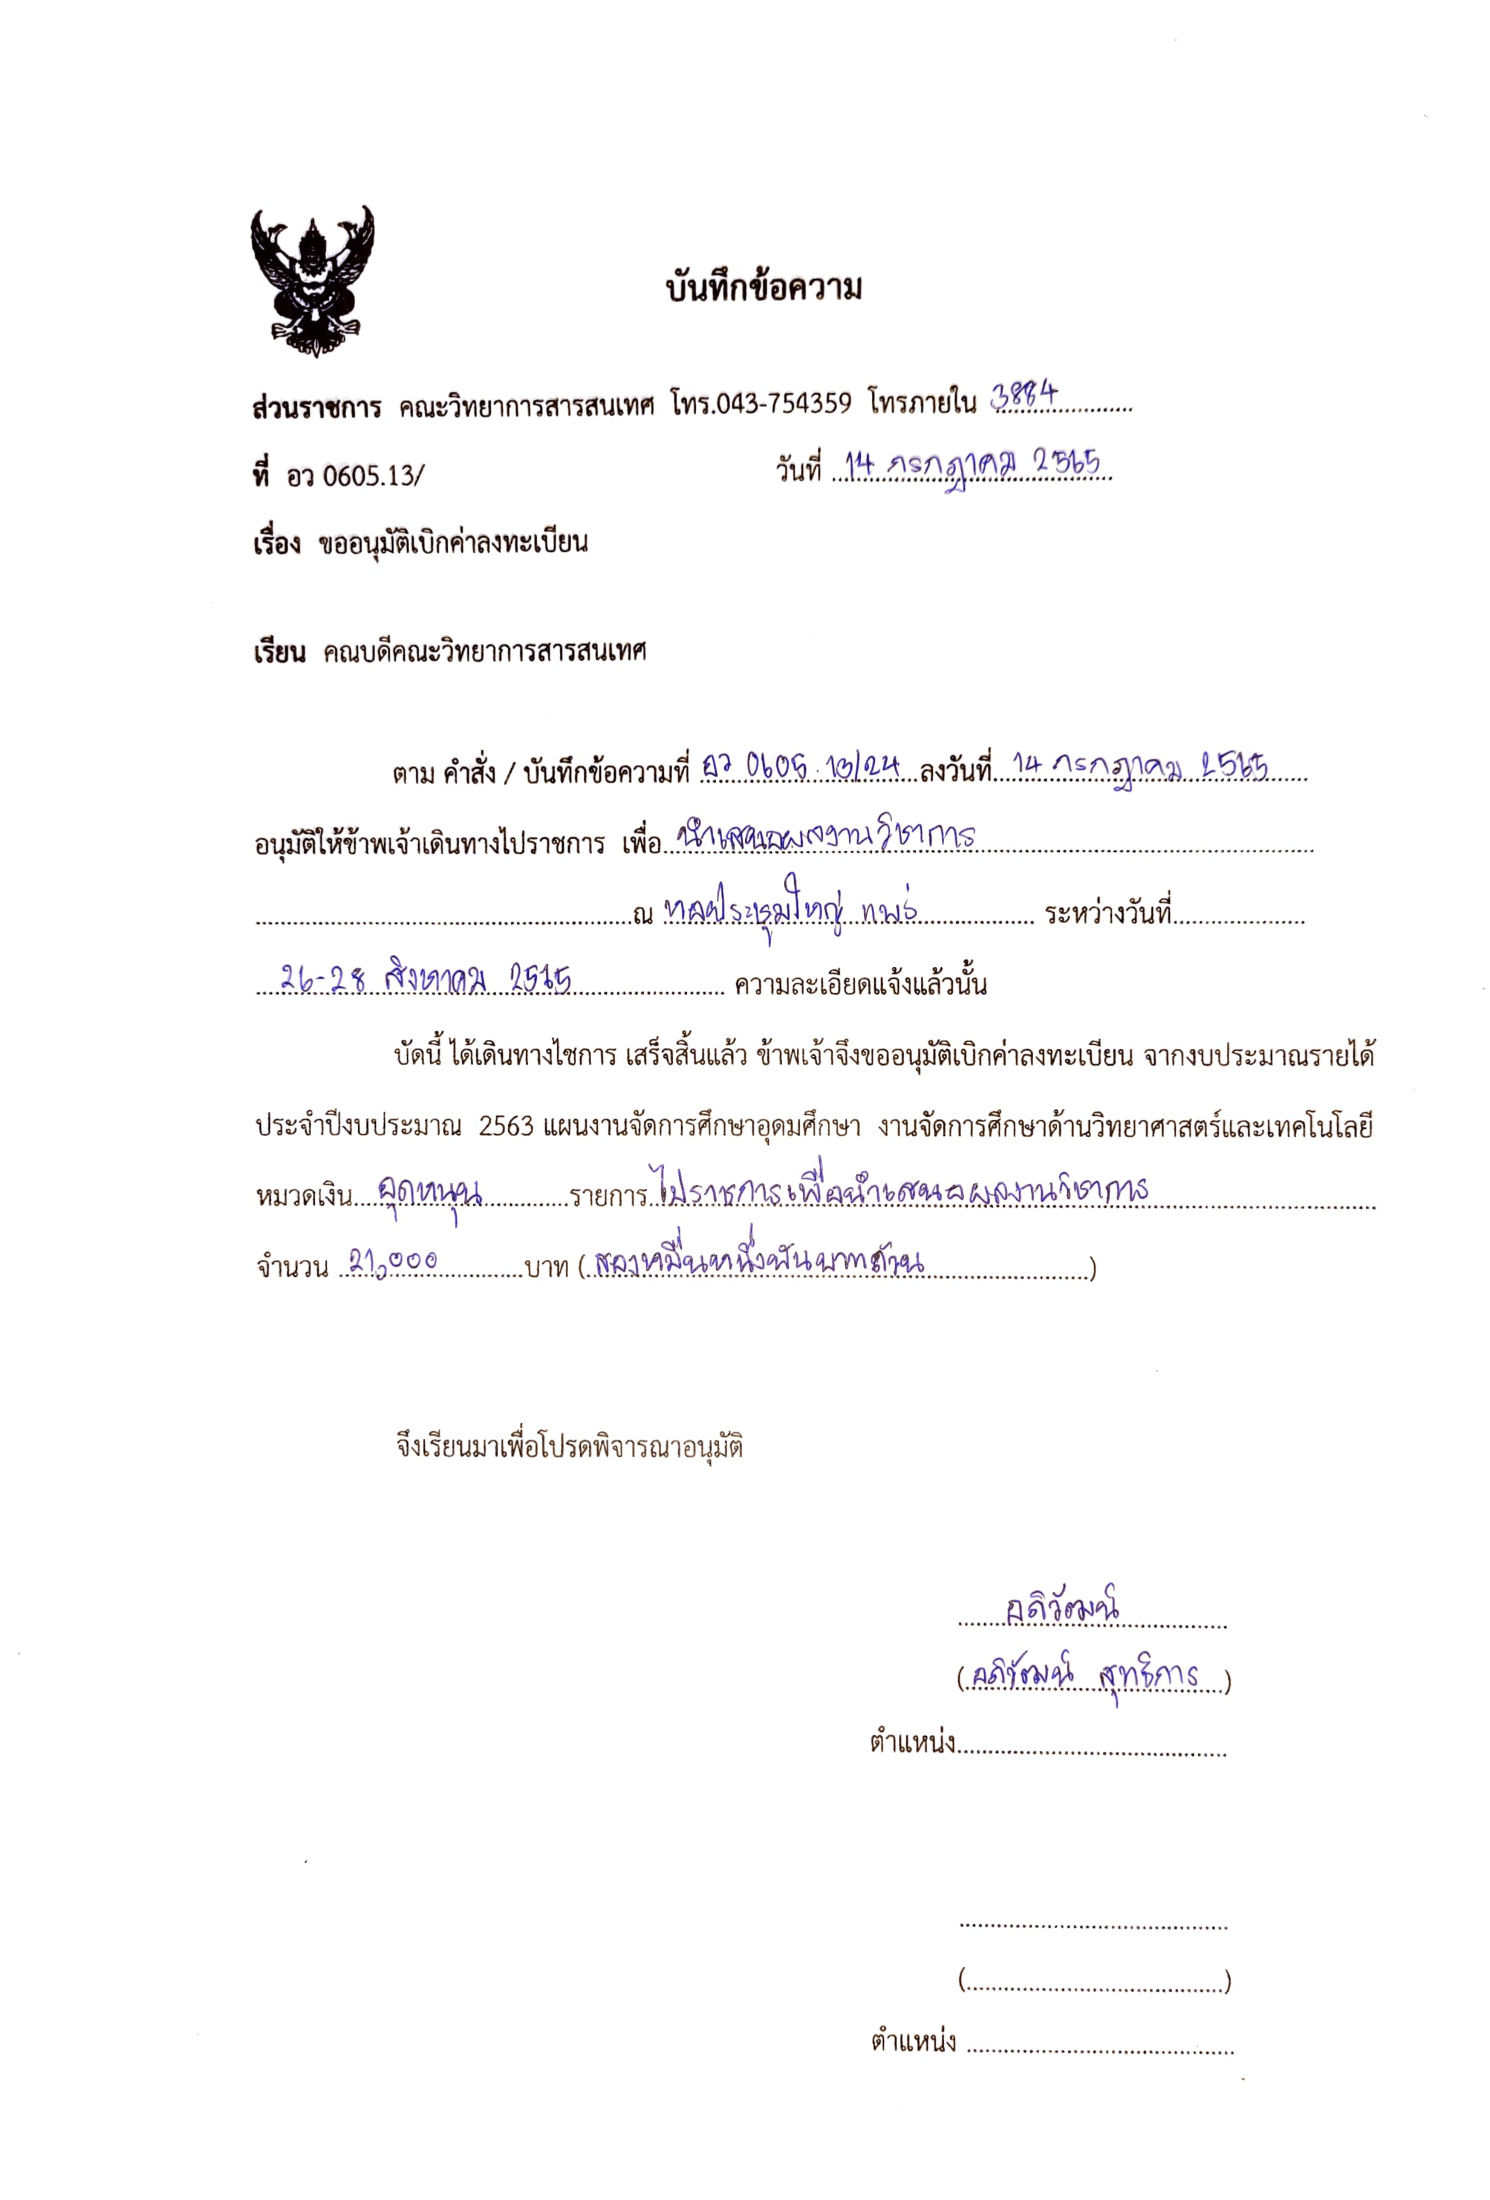 บันทึกข้อความ
ส่วนราชการ คณะวิทยาการสารสนเทศ โทร.043-754359 โทรภายใน 3884
ที่ อว 0605.13/ วันที่ 14 กรกฎาคม 2565
เรื่อง ขออนุมัติเบิกค่าลงทะเบียน
เรียน คณบดีคณะวิทยาการสารสนเทศ
ตาม คำสั่ง / บันทึกข้อความที่ อว 0605.13/24 ลงวันที่ 14 กรกฎาคม 2565
อนุมัติให้ข้าพเจ้าเดินทางไปราชการ เพื่อ นำเสนอผลงานวิชาการ
ณ หอประชุมใหญ่ แพร่ ระหว่างวันที่
26-28 สิงหาคม 2565 ความละเอียดแจ้งแล้วนั้น
บัดนี้ ได้เดินทางไชการ เสร็จสิ้นแล้ว ข้าพเจ้าจึงขออนุมัติเบิกค่าลงทะเบียน จากงบประมาณรายได้
ประจำปีงบประมาณ 2563 แผนงานจัดการศึกษาอุดมศึกษา งานจัดการศึกษาด้านวิทยาศาสตร์และเทคโนโลยี
หมวดเงิน อุดหนุน รายการ ไปราชการเพื่อนำเสนอผลงานวิชาการ
จำนวน 21,000 บาท (สองหมื่นหนึ่งพันบาทถ้วน)
จึงเรียนมาเพื่อโปรดพิจารณาอนุมัติ
อภิวัฒน์
(อภิวัฒน์ สุทธิการ)
ตำแหน่ง
()
ตำแหน่ง